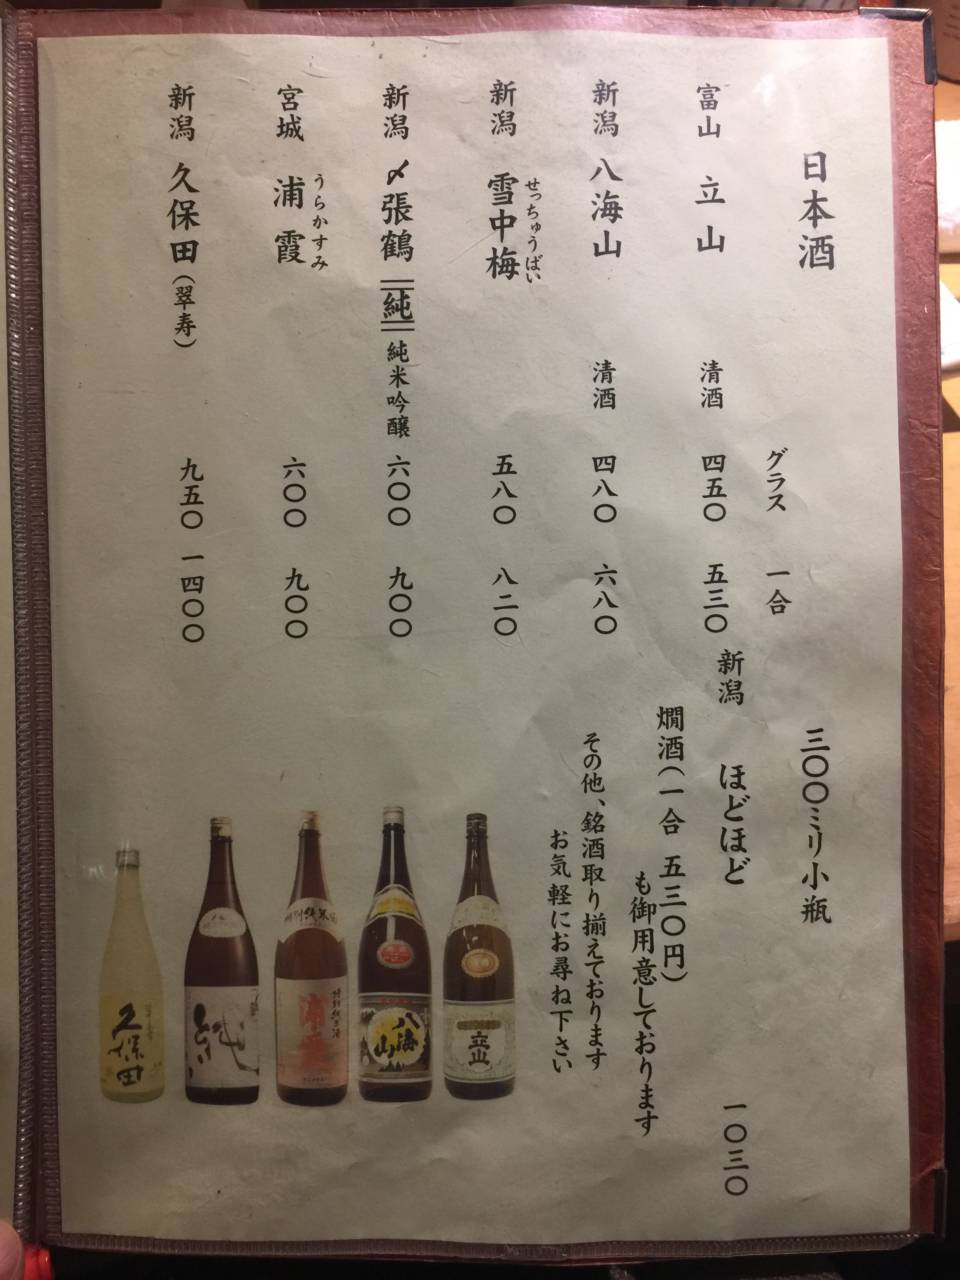 日本酒
三〇〇ミリ小瓶
グラス 一合
富山 立山 清酒 四五〇 五三〇
新潟 ほどほど 一〇三〇
新潟 八海山 清酒 四八〇 六八〇
燗酒(一合 五三〇円)
も御用意しております
新潟 雪中梅 五八〇 八二〇
せっちゅうばい
その他、銘酒取り揃えております
お気軽にお尋ね下さい
新潟 〆張鶴 純 純米吟醸 六〇〇 九〇〇
宮城 浦霞 六〇〇 九〇〇
うらかすみ
新潟 久保田(翠寿) 九五〇 一四〇〇
立山
八海山
特別純米酒
純
久保田